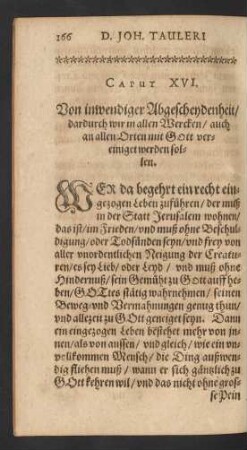 166 D. JOH. TAULERI
CAPUT XVI.
Von inwendiger Abgescheydenheit/
dardurch wir in allen Wercken/ auch
an allen Orten mit GOtt ver-
einiget werden sol-
len.
WER da begehrt ein recht ein-
gezogen Leben zuführen/ der muß
in der Statt Jerusalem wohnen/
das ist/ im Frieden/ und muß ohne Beschul-
digung/ oder Todsünden seyn/ und frey von
aller unordentlichen Neigung der Creatu-
ren/ es sey Lieb/ oder Leyd/ und muß ohne
Hindernuß/ sein Gemüht zu Gott auff he-
ben/ GOTTes stätig wahrnehmen/ seinen
Beweg- und Vermahnungen genug thun/
und allezeit zu GOtt geneiget seyn. Dann
ein eingezogen Leben bestehet mehr von in-
nen/ als von aussen/ und gleich/ wie ein un-
volkommen Mensch/ die Ding außwen-
dig fliehen muß/ wann er sich gäntzlich zu
GOtt kehren wil/ und das nicht ohne gros-
se Pein